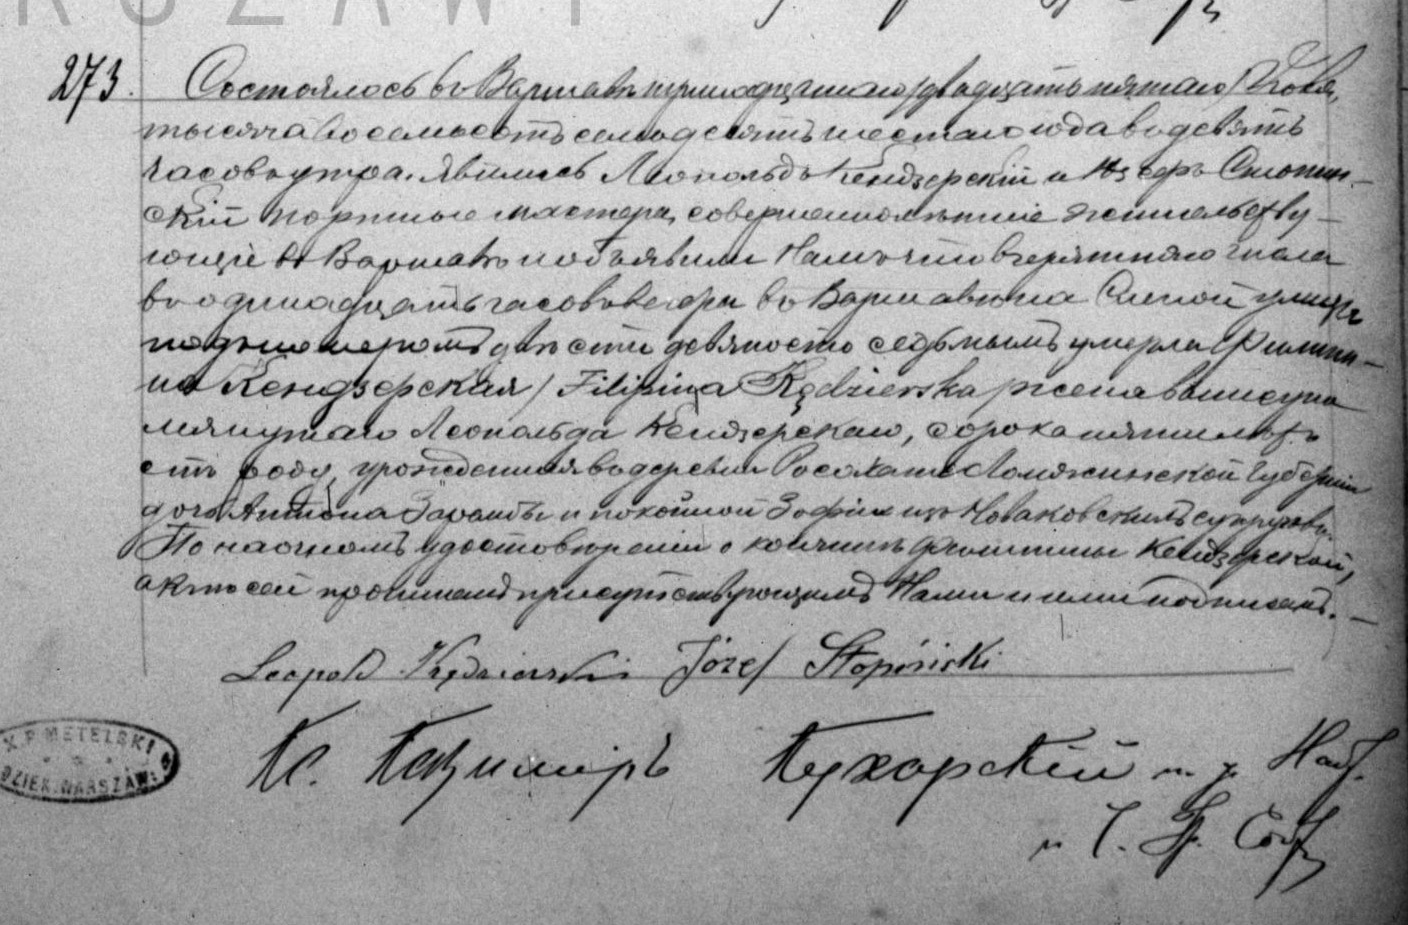 RSZAWY
273. Состоялось въ Варшавѣ тринадцатаго /двадцать пятаго/
тысяча восемьсотъ семьдесятъ шестаго года въ девять
часовъ утра. Явились Леопольдъ Кендзерскій и Юзефъ Слопин-
скій портные мастера, совершеннолѣтніе жительству-
ющіе въ Варшавѣ и объявили Намъ что вчерашняго числа
въ одинадцать часовъ вечера въ Варшавѣ на улицѣ
подъ номеромъ двѣсти девяносто седьмымъ умерла Филипи-
на Кендзерская / Filipina Kędzierska / жена вышеупо-
мянутаго Леопольда Кендзерскаго, сорока пяти лѣтъ
рожденная въ деревни Рософате Ломжинской Губерніи
дочь Антона и покойной Зофіи изъ Новаковскихъ супруговъ.
По наочномъ удостовѣреніи о кончинѣ Филипины Кендзерской,
актъ сей прочитанъ присутствующимъ Нами и ими подписанъ. —
Leopold Kędzierski Józef Słopiński
Кс. Казиміръ Кухарскій
X. P. METELSKI
DZIEK. WARSZAW: